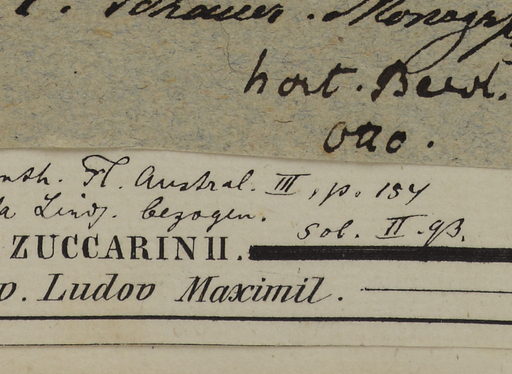 Schauer. Monogr
hort. Berol.
Benth. Fl. Austral. III, p. 154
Lindj. bezogen.
Sol. II. 93.
ZUCCARINII.
Ludov Maximil.